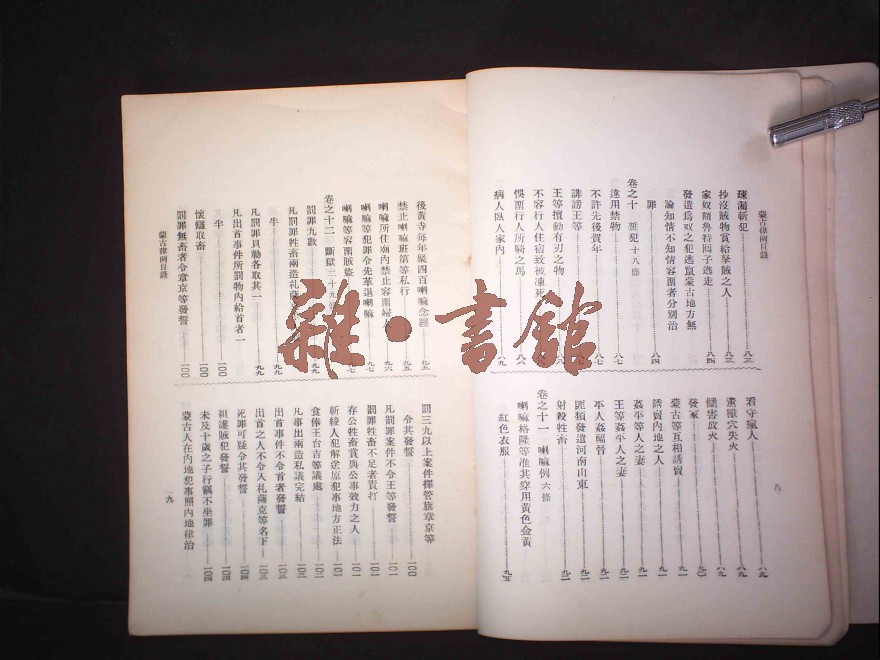 蒙古律例目錄
疎漏斬犯 八三
抄沒賊物賞給舉賊之人 八三
家奴額魯特回子逃走 八四
發遣爲奴之犯逃竄蒙古地方無
論知情不知情容留者分別治
罪 八四
卷之十 雜犯十八條
違用禁物 八七
不許先後賀年 八七
誹謗王等
王等擅動有刃之物
不容行人住宿致被凍死
悞留行人所騎之馬 八八
病人臥人家內 八九
看守瘋人 八九
熏獸穴失火 八九
讎害放火
發冢 九〇
蒙古等互相誘賣 九一
誘賣內地之人 九一
姦平等人之妻 九一
王等姦平人之妻 九一
平人姦福晉 九二
匪類發遣河南山東 九二
射殺牲畜 九二
卷之十一 喇嘛例六條
喇嘛格隆等准其穿用黃色金黃
紅色衣服 九五
八
後黃寺每年聚四百喇嘛念經 九五
禁止喇嘛班第等私行 九五
喇嘛所住廟內禁止容留婦人 九六
喇嘛等犯罪令先革退喇嘛 九七
喇嘛等容留賊盜 九七
卷之十二 斷獄二十九條
罰罪九數 九九
凡罰罪牲畜兩造札薩
牛 九九
凡罰罪貝勒各取其一 九九
凡出首事件所罰物內給首者一
牛 一〇〇
懷讎取畜 一〇〇
罰罪無畜者令章京等發誓 一〇〇
蒙古律例目錄
罰三九以上案件擇管旗章京等
令其發誓 一〇〇
凡罰罪案件不令王等發誓 一〇一
罰罪牲畜不足者責打 一〇一
存公牲畜賞與公事效力之人 一〇一
斬絞人犯解送原犯事地方正法 一〇二
食俸王台吉等議處 一〇二
凡事出兩造私議完結 一〇二
出首事件不令首者發誓 一〇三
出首之人不令入札薩克等名下 一〇三
死罪可疑令其發誓 一〇四
袒護賊犯發誓 一〇四
未及十歲之子行竊不坐罪 一〇四
蒙古人在內地犯事照內地律治 一〇四
九
雜·書館